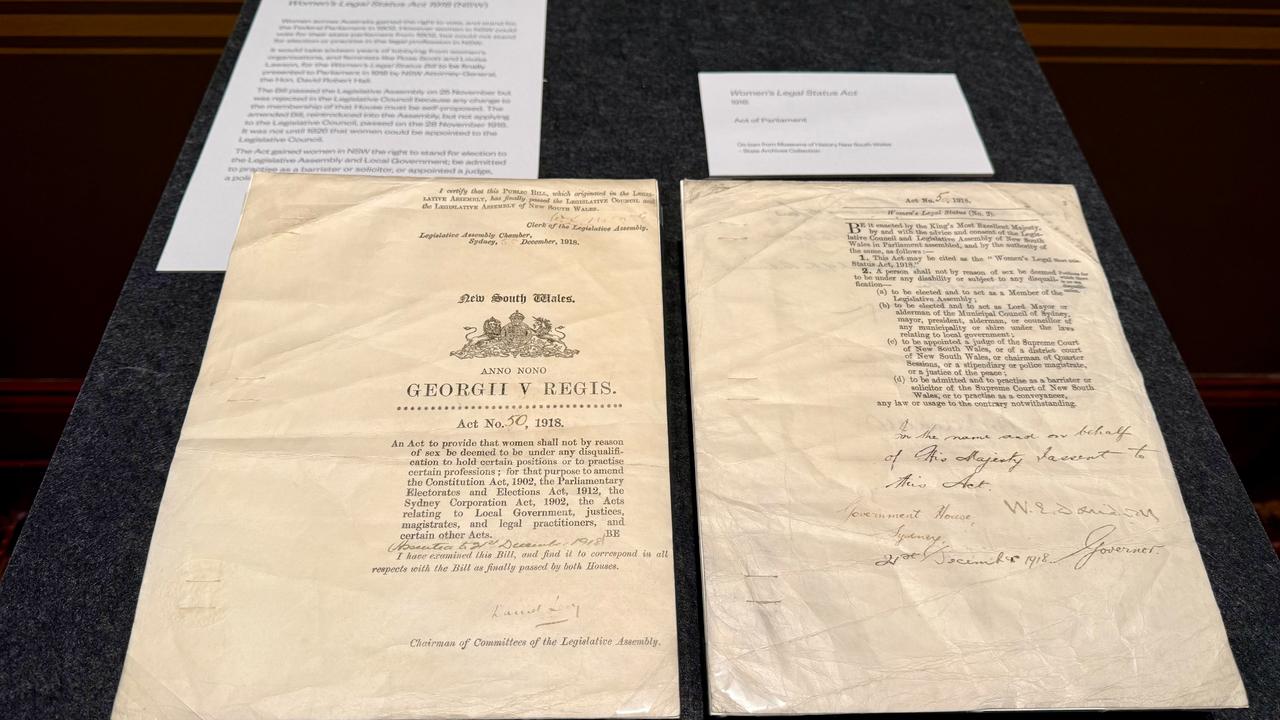 Women's Legal Status Act 1918 (NSW)
Women across Australia gained the right to vote, and stand for
the Federal Parliament in 1902. However women in NSW could
vote for their state parliament from 1902, but could not stand
for election or practise in the legal profession in NSW.
It would take sixteen years of lobbying from women's
organisations, and feminists like Rose Scott and Louisa
Lawson, for the Women's Legal Status Bill to be finally
presented to Parliament in 1918 by NSW Attorney-General,
the Hon. David Robert Hall.
The Bill passed the Legislative Assembly on 26 November but
was rejected in the Legislative Council because any change to
the membership of that House must be self-proposed. The
amended Bill, reintroduced into the Assembly, but not applying
to the Legislative Council, passed on the 28 November 1918.
It was not until 1926 that women could be appointed to the
Legislative Council.
The Act gained women in NSW the right to stand for election to
the Legislative Assembly and Local Government; be admitted
to practise as a barrister or solicitor, or appointed a judge,
Women's Legal Status Act
1918
Act of Parliament
On loan from Museums of History New South Wales
- State Archives Collection
I certify that this PUBLIC BILL, which originated in the LEGIS-
LATIVE ASSEMBLY, has finally passed the LEGISLATIVE COUNCIL and
the LEGISLATIVE ASSEMBLY of NEW SOUTH WALES.
Clerk of the Legislative Assembly.
Legislative Assembly Chamber,
Sydney, December, 1918.
New South Wales.
ANNO NONO
GEORGII V REGIS.
Act No. 50, 1918.
An Act to provide that women shall not by reason
of sex be deemed to be under any disqualifi-
cation to hold certain positions or to practise
certain professions; for that purpose to amend
the Constitution Act, 1902, the Parliamentary
Electorates and Elections Act, 1912, the
Sydney Corporation Act, 1902, the Acts
relating to Local Government, justices,
magistrates, and legal practitioners, and
certain other Acts.
BE
Assented to 21st December 1918
I have examined this Bill, and find it to correspond in all
respects with the Bill as finally passed by both Houses.
Chairman of Committees of the Legislative Assembly.
Act No. 1918.
Women's Legal Status (No. 2).
BE it enacted by the King's Most Excellent Majesty,
by and with the advice and consent of the Legis-
lative Council and Legislative Assembly of New South
Wales in Parliament assembled, and by the authority of
the same, as follows:—
1. This Act may be cited as the "Women's Legal
Status Act, 1918."
2. A person shall not by reason of sex be deemed
to be under any disability or subject to any disquali-
fication—
(a) to be elected and to act as a Member of the
Legislative Assembly;
(b) to be elected and to act as Lord Mayor or
alderman of the Municipal Council of Sydney,
mayor, president, alderman, or councillor of
any municipality or shire under the laws
relating to local government;
(c) to be appointed a judge of the Supreme Court
of New South Wales, or of a district court
or chairman of Quarter
Sessions, or a stipendiary or police magistrate,
or a justice of the peace;
(d) to be admitted and to practise as a barrister or
solicitor of the Supreme Court of New South
Wales, or to practise as a conveyancer,
any law or usage to the contrary notwithstanding.
In the name and on behalf
of His Majesty I assent to
this Act.
Government House,
Sydney,
21st December 1918.
Governor.